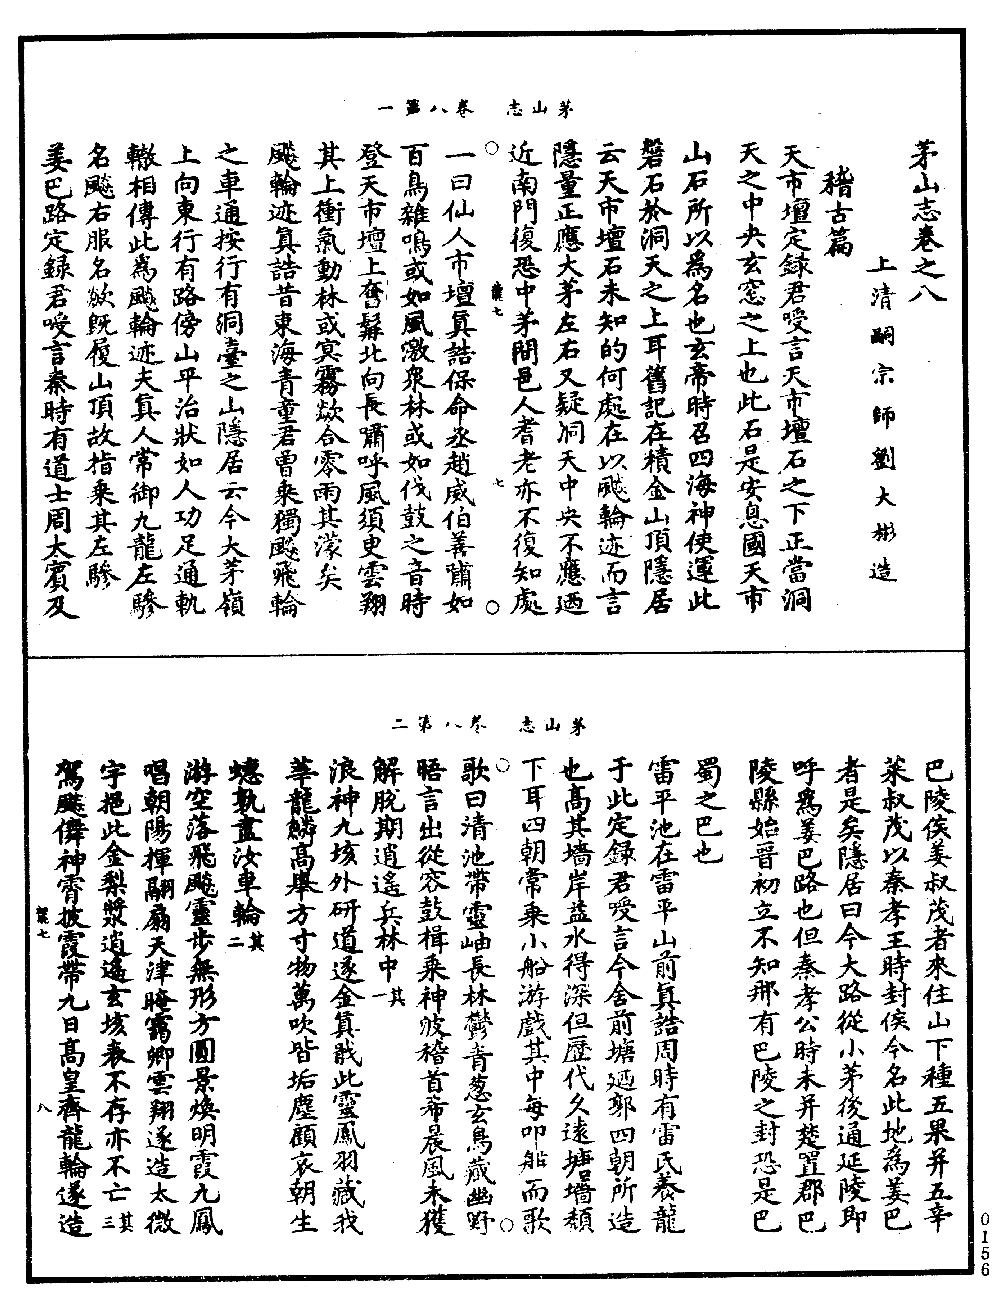 茅山志　卷八第一
茅山志卷之八
上清嗣宗師劉大彬造
稽古篇
天市壇定録君受言天市壇石之下正當洞
天之中央玄窓之上也此石是安息國天市
山石所以爲名也玄帝時召四海神使運此
磐石於洞天之上耳舊記在積金山頂隱居
云天市壇石未知的何處在以飈輪迹而言
隱量正應大茅左右又疑洞天中央不應迺
近南門復恐中茅間邑人耆老亦不復知處
七
一曰仙人市壇眞誥保命丞趙威伯善嘯如
百鳥雜鳴或如風激衆林或如伐鼓之音時
登天市壇上奮髯北向長嘯呼風須臾雲翔
其上衝氣動林或冥霧歘合零雨其濛矣
飈輪迹眞誥昔東海青童君曾乘獨飈飛輪
之車通按行有洞臺之山隱居云今大茅嶺
上向東行有路傍山平治狀如人功足通軌
轍相傳此爲飈輪迹夫眞人常御九龍左驂
名飈右服名歘既履山頂故指乘其左驂
姜巴路定録君受言秦時有道士周太賓及
茅山志　卷八第二
巴陵侯姜叔茂者來住山下種五果并五辛
菜叔茂以秦孝王時封侯今名此地爲姜巴
者是矣隱居曰今大路從小茅後通延陵即
呼爲姜巴路也但秦孝公時未并楚置郡巴
陵縣始晉初立不知那有巴陵之封恐是巴
蜀之巴也
雷平池在雷平山前眞誥周時有雷氏養龍
于此定録君受言今舍前塘迺郭四朝所造
也高其墻岸益水得深但歷代久遠塘墻頹
下耳四朝常乘小船游戲其中每叩船而歌
歌曰清池帶靈岫長林鬱青葱玄鳥藏幽野
晤言出從容鼓楫乘神波稽首希晨風未獲
解脫期逍遙丘林中其一
浪神九垓外研道遂金眞戢此靈鳳羽藏我
華龍鱗高舉方寸物萬吹皆垢塵顧哀朝生
蟪孰盡汝車輪其二
游空落飛飈靈步無形方圓景煥明霞九鳳
唱朝陽揮翮扇天津晻藹卿雲翔遂造太微
宇挹此金梨漿逍遙玄垓表不存亦不亡其三
七　八
駕飈儛神霄披霞帶九日高皇齊龍輪遂造
0156